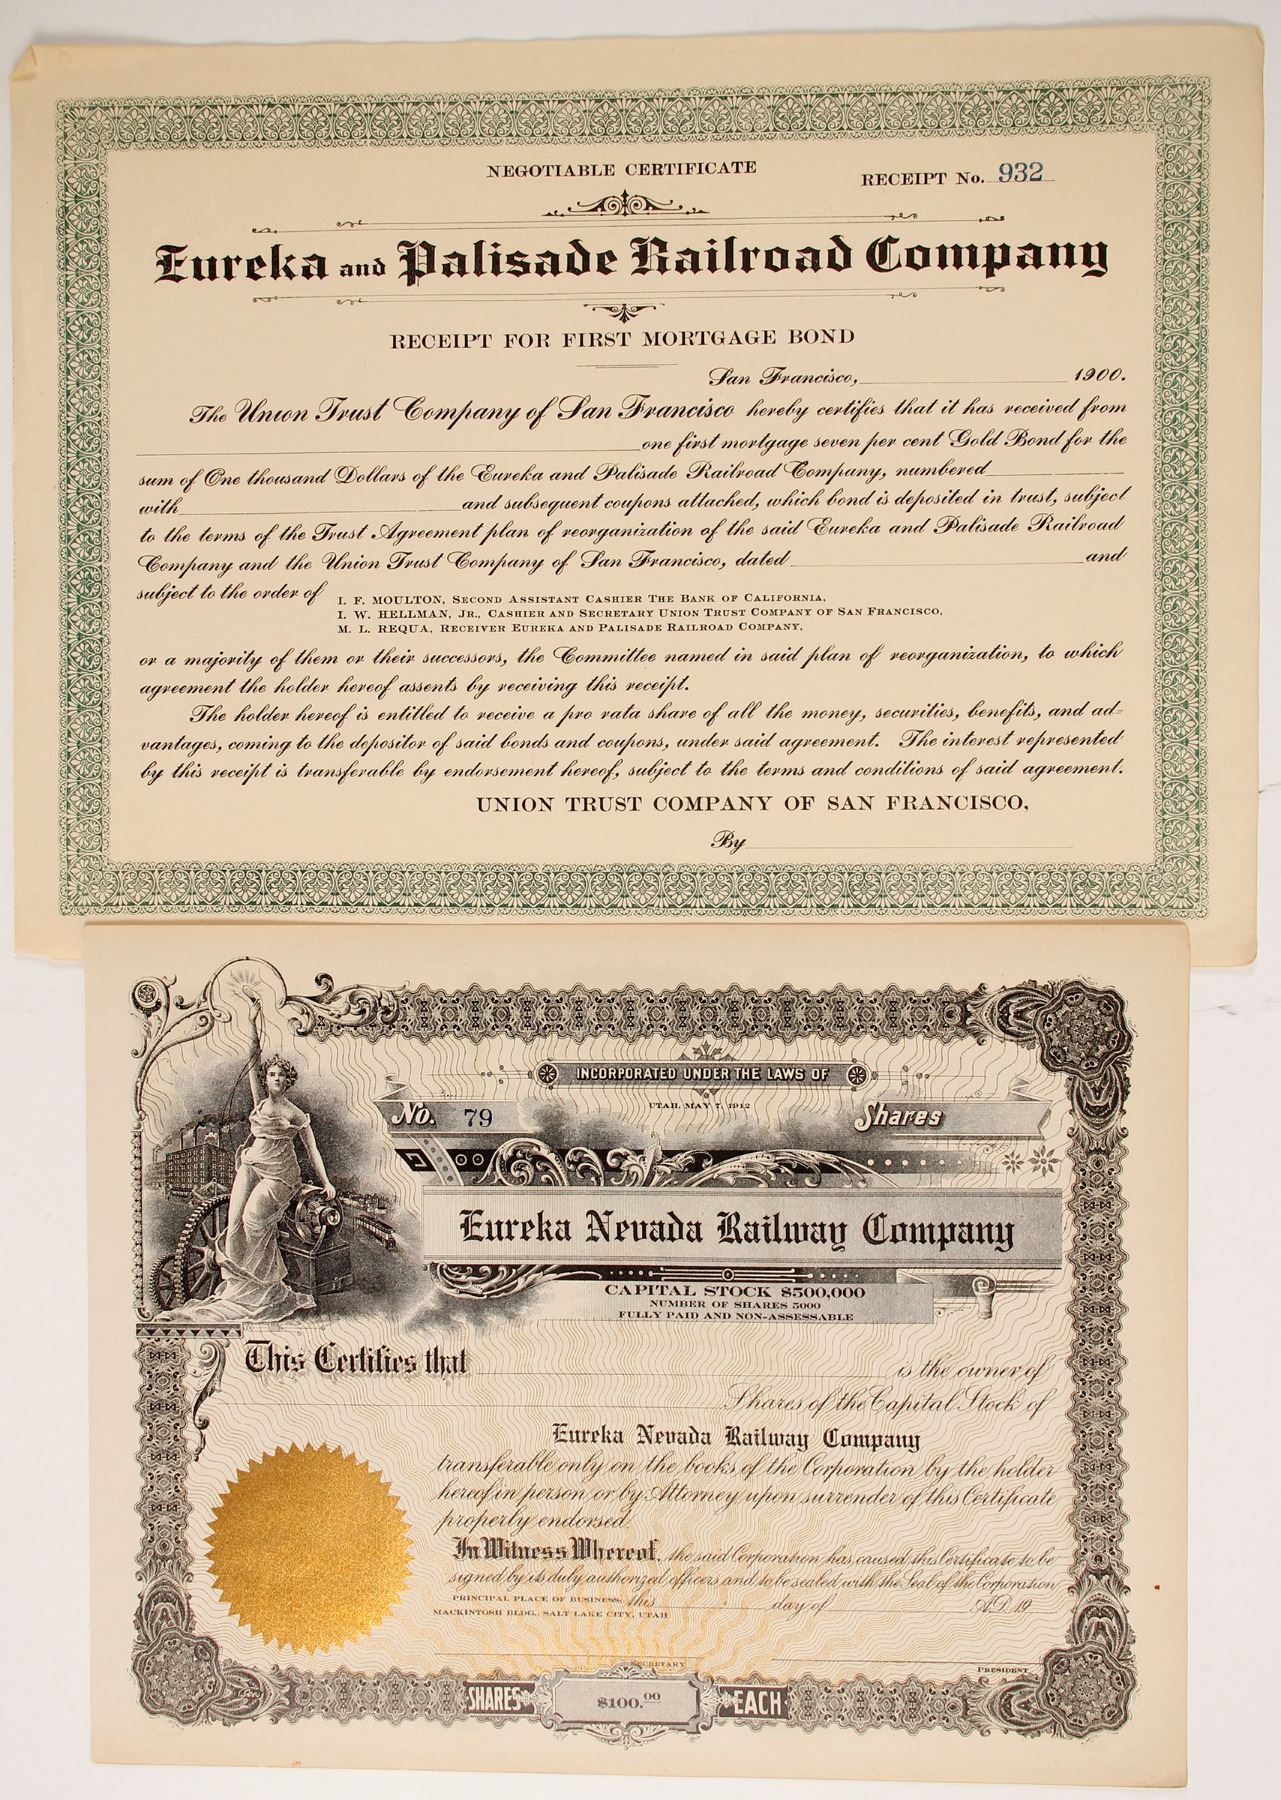 NEGOTIABLE CERTIFICATE
RECEIPT No. 932
Eureka and Palisade Railroad Company
RECEIPT FOR FIRST MORTGAGE BOND
San Francisco, 1900.
The Union Trust Company of San Francisco hereby certifies that it has received from
one first mortgage seven per cent Gold Bond for the
sum of One thousand Dollars of the Eureka and Palisade Railroad Company, numbered
with and subsequent coupons attached, which bond is deposited in trust, subject
to the terms of the Trust Agreement plan of reorganization of the said Eureka and Palisade Railroad
Company and the Union Trust Company of San Francisco, dated and
subject to the order of
I. F. MOULTON, SECOND ASSISTANT CASHIER THE BANK OF CALIFORNIA,
I. W. HELLMAN, JR., CASHIER AND SECRETARY UNION TRUST COMPANY OF SAN FRANCISCO,
M. L. REQUA, RECEIVER EUREKA AND PALISADE RAILROAD COMPANY,
or a majority of them or their successors, the Committee named in said plan of reorganization, to which
agreement the holder hereof assents by receiving this receipt.
The holder hereof is entitled to receive a pro rata share of all the money, securities, benefits, and ad-
vantages, coming to the depositor of said bonds and coupons, under said agreement. The interest represented
by this receipt is transferable by endorsement hereof, subject to the terms and conditions of said agreement.
UNION TRUST COMPANY OF SAN FRANCISCO,
By
INCORPORATED UNDER THE LAWS OF
UTAH, MAY 7, 1912
No. 79 Shares
Eureka Nevada Railway Company
CAPITAL STOCK $500,000
NUMBER OF SHARES 5000
FULLY PAID AND NON-ASSESSABLE
This Certifies that is the owner of
Shares of the Capital Stock of
Eureka Nevada Railway Company
transferable only on the books of the Corporation by the holder
hereof in person or by Attorney upon surrender of this Certificate
properly endorsed.
In Witness Whereof, the said Corporation has caused this Certificate to be
signed by its duly authorized officers and to be sealed with the Seal of the Corporation
PRINCIPAL PLACE OF BUSINESS: this day of A.D. 19
MACKINTOSH BLDG., SALT LAKE CITY, UTAH
SECRETARY
PRESIDENT
SHARES $100.00 EACH